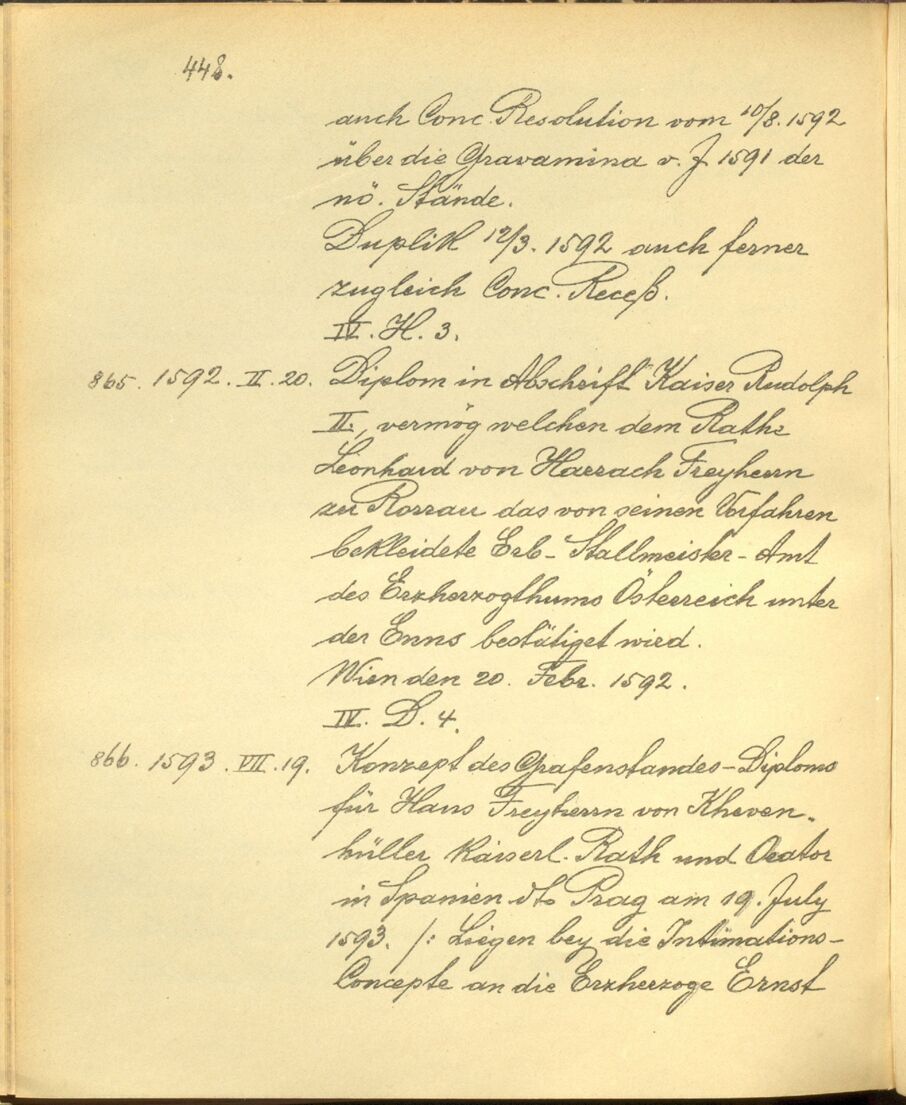 448.
auch Conc. Resolution vom 10/8. 1592
über die Gravamina v. J 1591 der
nö. Stände.
Duplik 12/3. 1592 auch ferner
zugleich Conc. Receß.
IV. H. 3.
865. 1592. II. 20. Diplom in Abschrift Kaiser Rudolph
II., vermög welchen dem Rathe
Leonhard von Harrach Freyherrn
zu Rorrau das von seinen Vorfahren
bekleidete Erb-Stallmeister-Amt
des Erzherzogthums Österreich unter
der Enns bestätiget wird.
Wien den 20. Febr. 1592.
IV. D. 4.
866. 1593. VII. 19. Konzept des Grafenstandes-Diploms
für Hans Freyherrn von Kheven-
hüller Kaiserl. Rath und Orator
in Spanien dto Prag am 19. July
1593. /: Liegen bey die Intimations-
Concepte an die Erzherzoge Ernst